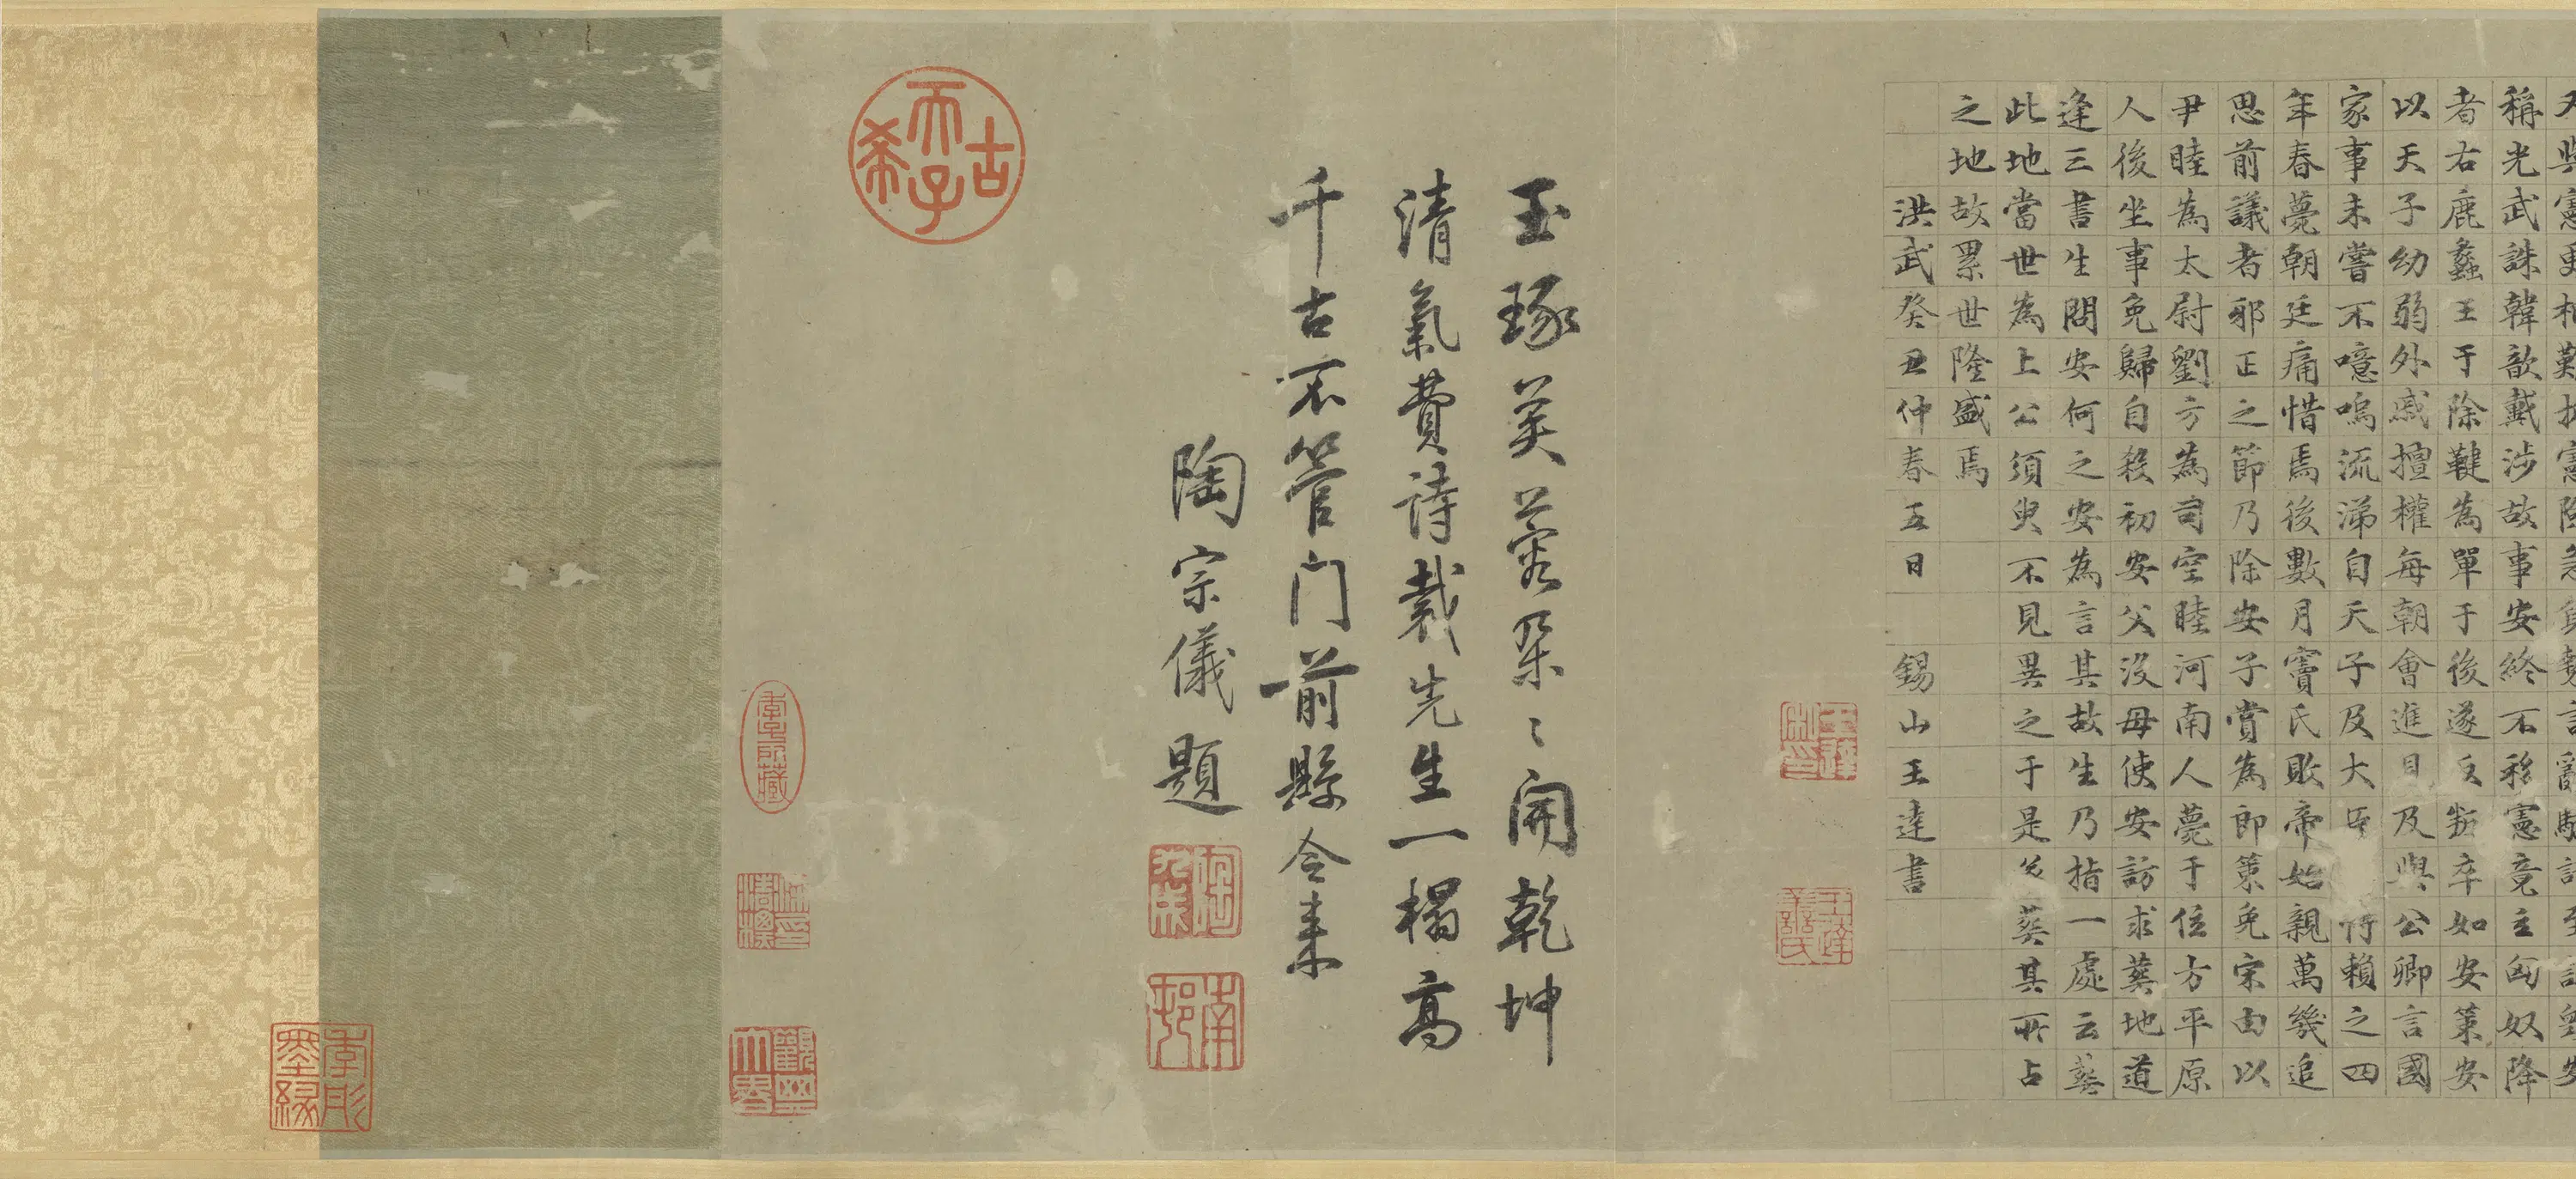 稱光武誅韓歆戴涉故事安終不移憲竟主匈奴降
者右鹿蠡王于除鞬為單于後遂反叛卒如安策安
以天子幼弱外戚擅權每朝會進見及與公卿言國
家事未嘗不噫嗚流涕自天子及大臣 恃賴之四
年春薨朝廷痛惜焉後數月竇氏敗帝始親萬幾追
思前議者邪正之節乃除安子賞為郎策免宋由以
尹睦為太尉劉方為司空睦河南人薨于位方平原
人後坐事免歸自殺初安父沒母使安訪求葬地道
逢三書生問安何之安為言其故生乃指一處云葬
此地當世為上公須臾不見異之于是 葬其所占
之地故累世隆盛焉
洪武癸丑仲春五日 錫山王達書
玉琢芙蓉朵〻開乾坤
清氣費詩裁先生一榻高
千古不管门前縣令來
陶宗儀題
古希天子
陶九成
南邨